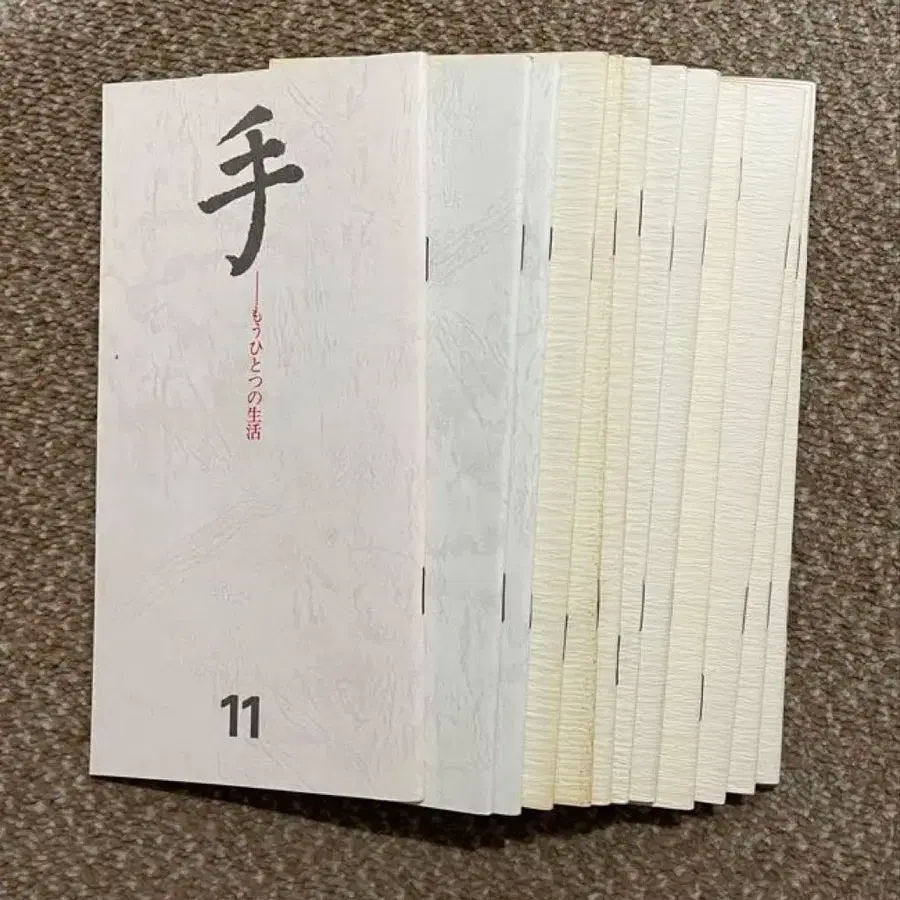 手
——もうひとつの生活
11